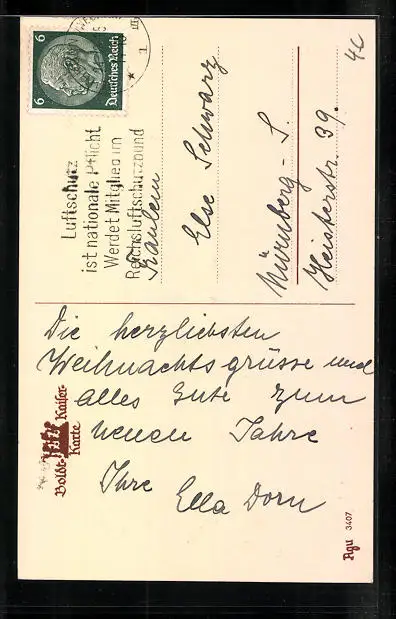 6 6
Deutsches Reich
Luftschutz
ist nationale Pflicht
Werdet Mitglied im
Reichsluftschutzbund
Fräulein
Else Schwarz
Nürnberg - S.
Heisterstr. 39.
4c
Die herzliebsten
Weihnachtsgrüsse und
alles Gute zum
neuen Jahre
Ihre
Ella Dorn
Boldt- Kaiser-
Karte
Agu 3407